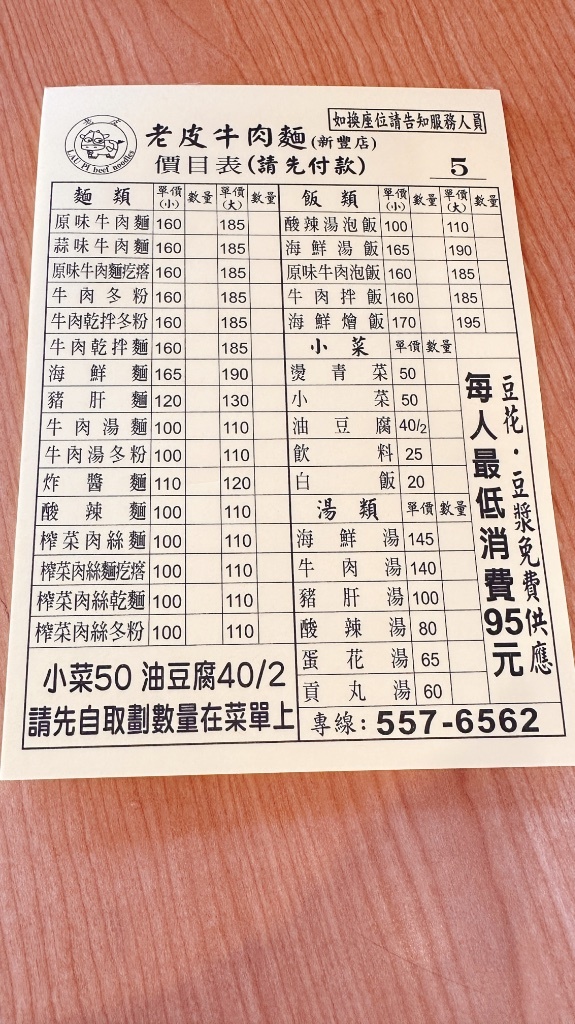 如換座位請告知服務人員
老皮
LAU PI beef noodles
老皮牛肉麵(新豐店)
價目表(請先付款)
5
麵類 單價(小) 數量 單價(大) 數量
原味牛肉麵 160 185
蒜味牛肉麵 160 185
原味牛肉麵疙瘩 160 185
牛肉冬粉 160 185
牛肉乾拌冬粉 160 185
牛肉乾拌麵 160 185
海鮮麵 165 190
豬肝麵 120 130
牛肉湯麵 100 110
牛肉湯冬粉 100 110
炸醬麵 110 120
酸辣麵 100 110
榨菜肉絲麵 100 110
榨菜肉絲麵疙瘩 100 110
榨菜肉絲乾麵 100 110
榨菜肉絲冬粉 100 110
小菜50 油豆腐40/2
請先自取劃數量在菜單上
飯類 單價(小) 數量 單價(大) 數量
酸辣湯泡飯 100 110
海鮮湯飯 165 190
原味牛肉泡飯 160 185
牛肉拌飯 160 185
海鮮燴飯 170 195
小菜 單價 數量
燙青菜 50
小菜 50
油豆腐 40/2
飲料 25
白飯 20
湯類 單價 數量
海鮮湯 145
牛肉湯 140
豬肝湯 100
酸辣湯 80
蛋花湯 65
貢丸湯 60
豆花·豆漿免費供應
每人最低消費95元
專線：557-6562